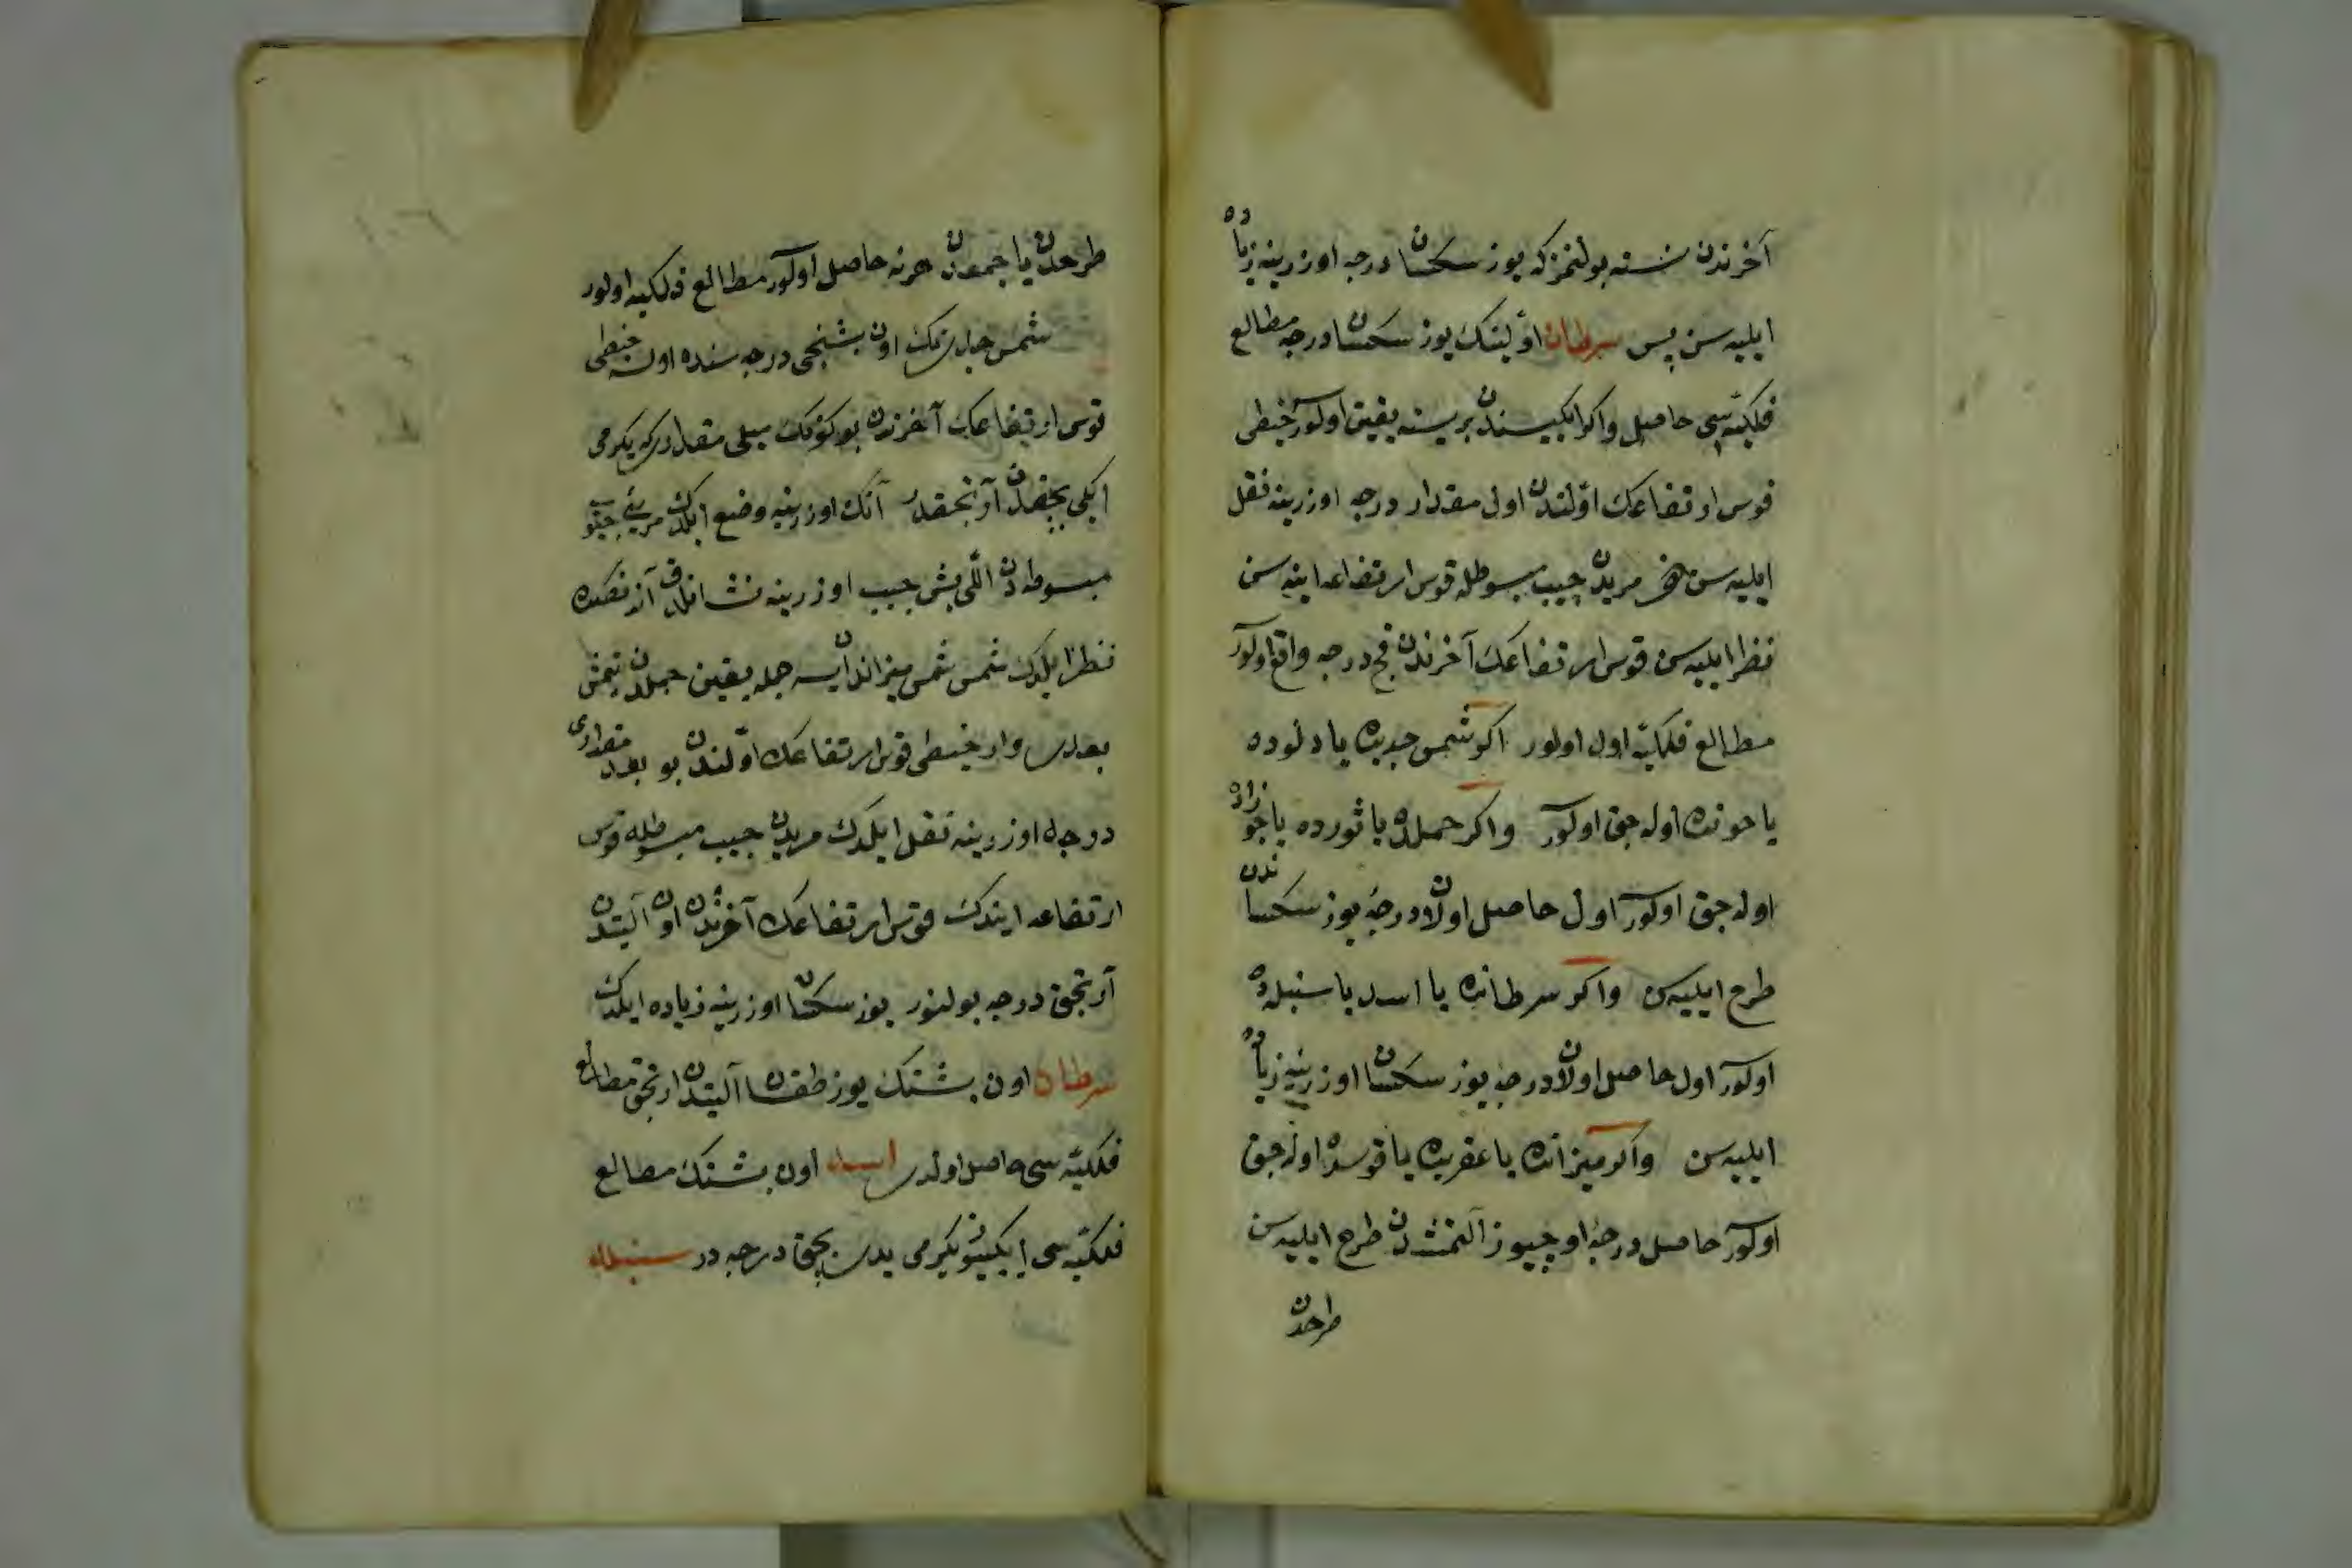 آخرندن نسنه بولنمز که یوز سکسان درجه اوزرینه زیاده
ایلیه سن پس سرطان اوّلینک یوز سکسان درجه مطالع
فلکیّه سی حاصل واکر ایکیسندن بریسنه یقین اولور خیطی
قوس ارتفاعک اوّلندن اول مقدار درجه اوزرینه نقل
ایلیه سن مریدن جیب مبسوطله قوس ارتفاعه اینه سن
نظر ایلیه سن قوس ارتفاعک آخرندن قچ درجه واقع اولور
مطالع فلکیّه اول اولور اکر شمس جدیده یا دلوده
یا حوتده اوله جق اولور واکر حملده یا ثورده یا جوزاده
اوله جق اولور اول حاصل اولان درجهٔ یوز سکساندن
طرح ایلیه سن واکر سرطانده یا اسد یا سنبله ده
اولور اول حاصل اولان درجه یوز سکسان اوزرینه زیاده
ایلیه سن واکر میزانده یا عقربده یا قوسده اوله جق
اولور حاصل درجهٔ اوچیوز آلتمشدن طرح ایلیه سن
طرحدن
طرحدن یا جمعدن هرنه حاصل اولور مطالع فلکیه اولور
شمس اون بشنجی درجه سنده اوله خیطی
قوس ارتفاعک آخرندن بو کونک میلی مقدار که یکرمی
ایکی بچقدن آرتجقدر آنک اوزرینه وضع ایلدک مریی
مبسوطه دن اللی بش جیب اوزرینه نشانلدق آندنصکره
نظر ایلدک شمس شمس میزاندن ایسه حمله یقین حملدن یتمش
بعدی وار خیطی قوس ارتفاعک اوّلندن بو بعد مقداری
درجه اوزرینه نقل ایلدک مریدن جیب مبسوطله قوس
ارتفاعه ایندک قوس ارتفاعک آخرندن اون آلتیدن
آرتجق درجه بولنور یوز سکسان اوزرینه زیاده ایلدک
سرطان اون بشنک یوز طقسان آلتیدن ارتجق مطالع
فلکیّه سی حاصل اولدی اسد اون بشنک مطالع
فلکیّه سی ایکییوز یکرمی یدی بچق درجه در سنبله